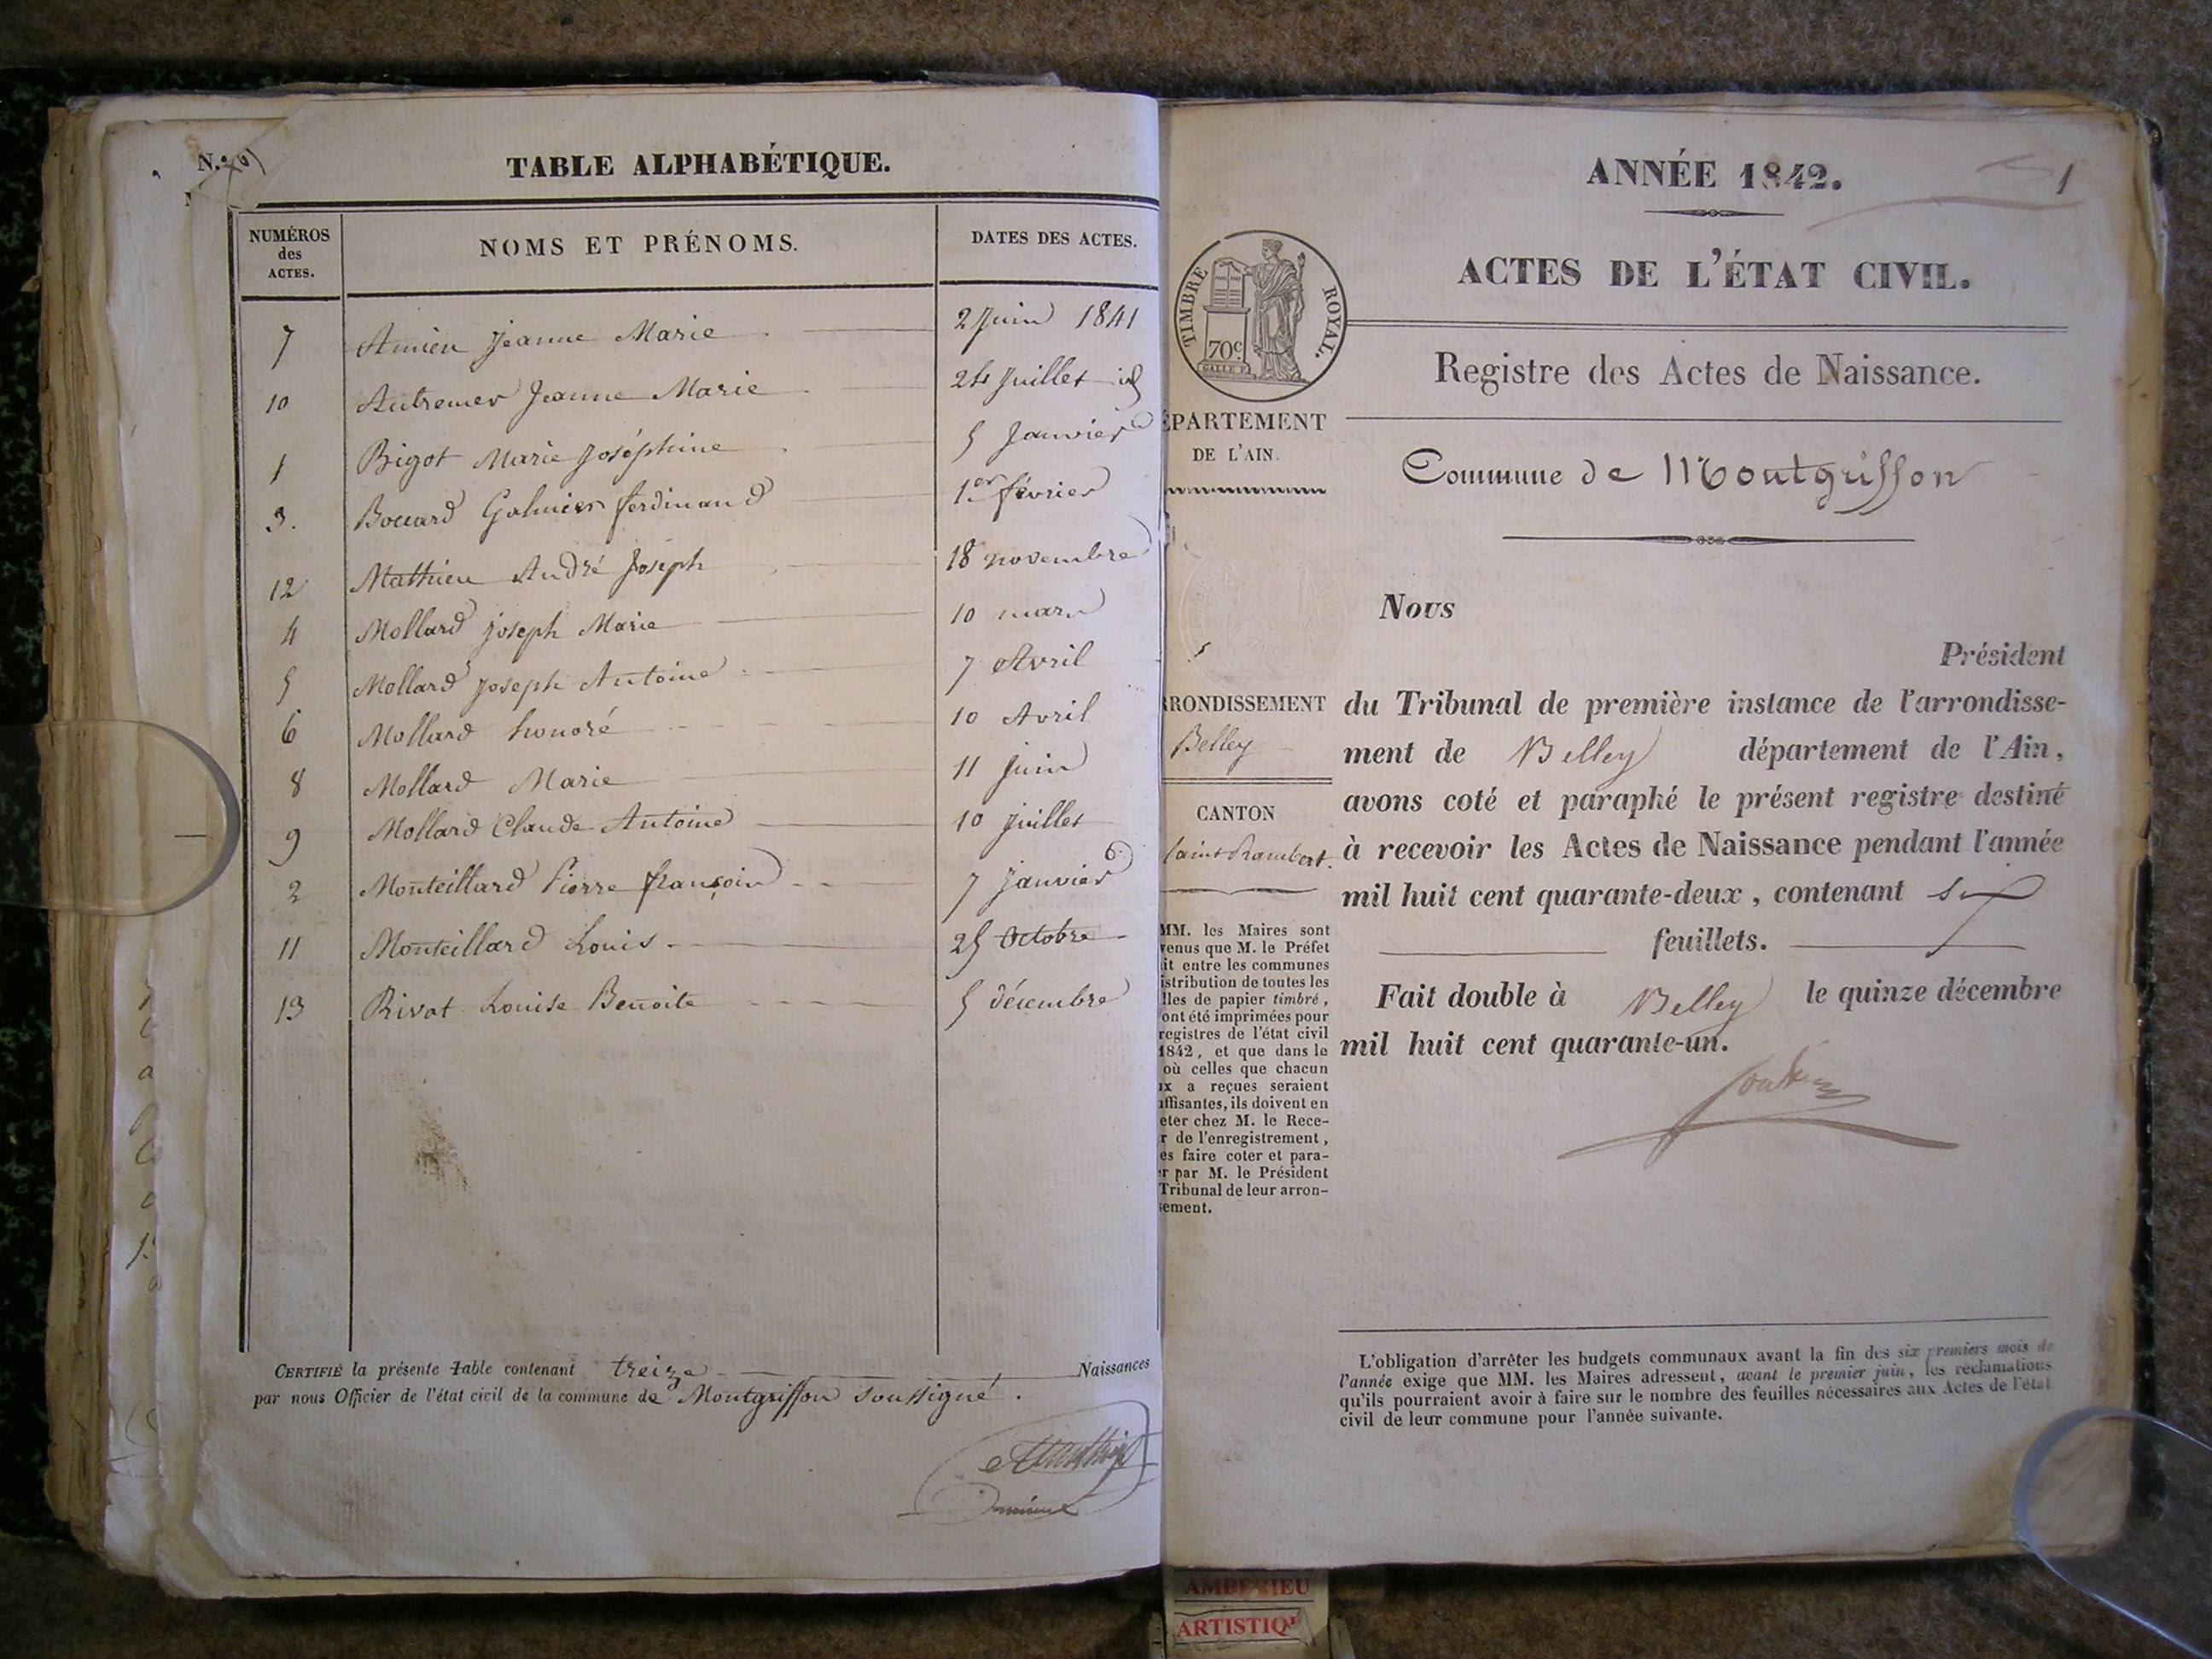 TABLE ALPHABÉTIQUE.
NUMÉROS
des
ACTES.
NOMS ET PRÉNOMS.
DATES DES ACTES.
7 Amieu Jeanne Marie 2 Juin 1841
10 Autremer Jeanne Marie 24 Juillet id
1 Bigot Marie Joséphine 5 Janvier
3. Boccard Galmier ferdinand 1er février
12 Mathieu André Joseph 18 novembre
4 Mollard Joseph Marie 10 mars
5 Mollard Joseph Antoine 7 Avril
6 Mollard honoré 10 Avril
8 Mollard Marie 11 Juin
9 Mollard Claude Antoine 10 Juillet
2 Monteillard Pierre françois 7 Janvier
11 Monteillard Louis 25 Octobre
13 Rivat Louise Benoite 5 décembre
CERTIFIÉ la présente Table contenant treize Naissances
par nous Officier de l'état civil de la commune de Montgriffon soussigné.
ANNÉE 1842.
1
ACTES DE L'ÉTAT CIVIL.
TIMBRE ROYAL.
70c
Registre des Actes de Naissance.
ÉPARTEMENT
DE L'AIN.
Commune de Montgriffon
Nous
Président
RRONDISSEMENT
Belley
du Tribunal de première instance de l'arrondisse-
ment de Belley département de l'Ain,
avons coté et paraphé le présent registre destiné
à recevoir les Actes de Naissance pendant l'année
mil huit cent quarante-deux, contenant six
feuillets.
Fait double à Belley le quinze décembre
mil huit cent quarante-un.
CANTON
Saint Rambert.
MM. les Maires sont
venus que M. le Préfet
it entre les communes
istribution de toutes les
lles de papier timbré,
ont été imprimées pour
registres de l'état civil
1842, et que dans le
où celles que chacun
ux a reçues seraient
uffisantes, ils doivent en
eter chez M. le Rece-
r de l'enregistrement,
es faire coter et para-
er par M. le Président
Tribunal de leur arron-
sement.
L'obligation d'arrêter les budgets communaux avant la fin des six premiers mois de
l'année exige que MM. les Maires adressent, avant le premier juin, les réclamations
qu'ils pourraient avoir à faire sur le nombre des feuilles nécessaires aux Actes de l'état
civil de leur commune pour l'année suivante.
AMBERIEU
ARTISTIQU